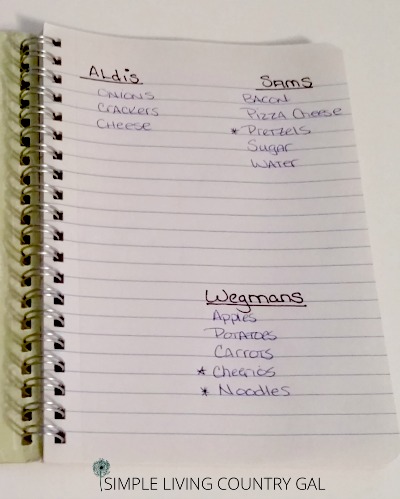 ALdis
ONIONS
CRACKERS
CHEESE
SAMS
BACON
Pizza Cheese
* Pretzels
Sugar
WATER
Wegmans
Apples
POTATOES
CARROTS
* Cheerios
* Noodles
SIMPLE LIVING COUNTRY GAL